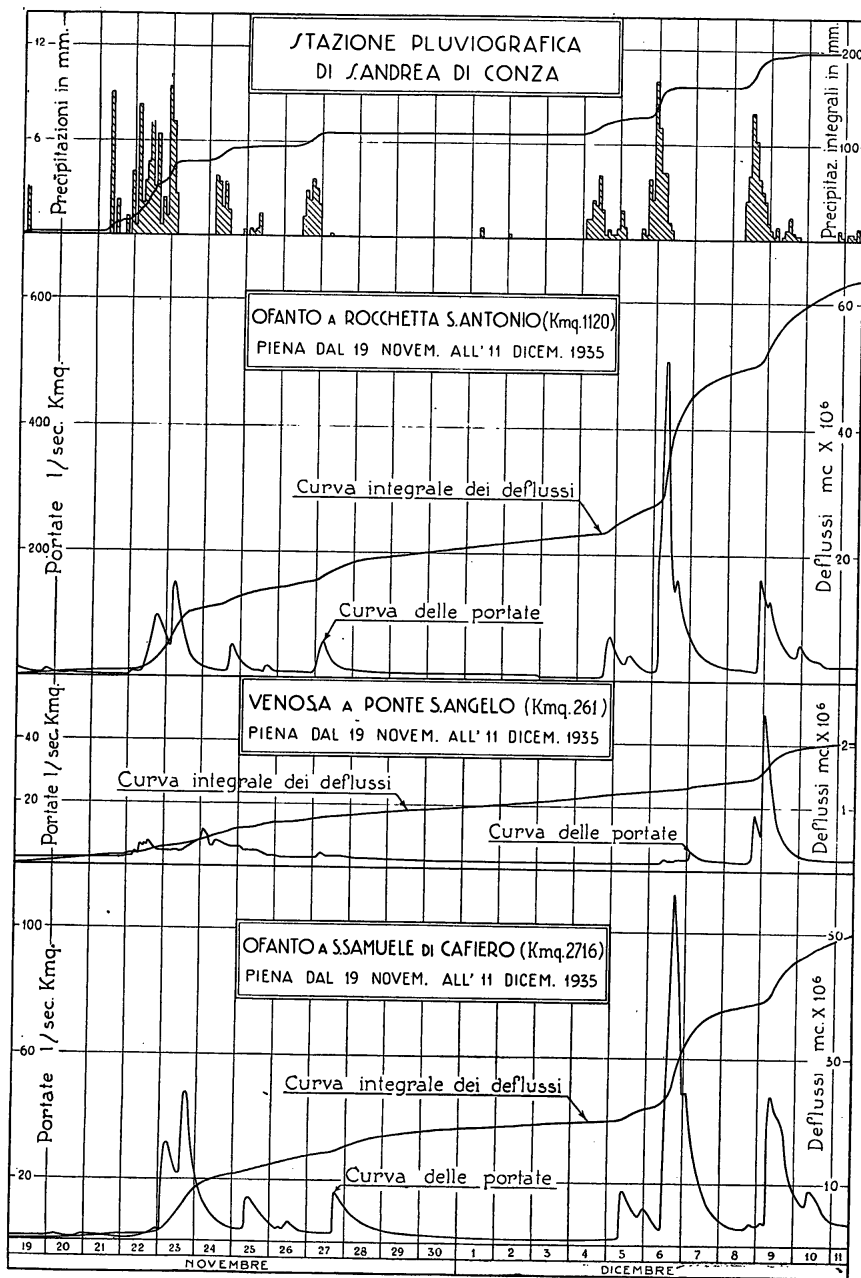 STAZIONE PLUVIOGRAFICA
DI S.ANDREA DI CONZA
Precipitazioni in mm.
12
6
Precipitaz. integrali in mm.
200
100
OFANTO A ROCCHETTA S.ANTONIO (Kmq.1120)
PIENA DAL 19 NOVEM. ALL'11 DICEM. 1935
Portate l/sec. Kmq.
600
400
200
Deflussi mc X 10⁶
60
40
20
Curva integrale dei deflussi
Curva delle portate
VENOSA A PONTE S.ANGELO (Kmq.261)
PIENA DAL 19 NOVEM. ALL'11 DICEM. 1935
Portate l/sec.Kmq.
40
20
Deflussi mc.X10⁶
2
1
Curva integrale dei deflussi
Curva delle portate
OFANTO A S.SAMUELE DI CAFIERO (Kmq.2716)
PIENA DAL 19 NOVEM. ALL'11 DICEM. 1935
Portate l/sec.Kmq.
100
60
20
Deflussi mc.X10⁶
50
30
10
Curva integrale dei deflussi
Curva delle portate
19 20 21 22 23 24 25 26 27 28 29 30 1 2 3 4 5 6 7 8 9 10 11
NOVEMBRE DICEMBRE